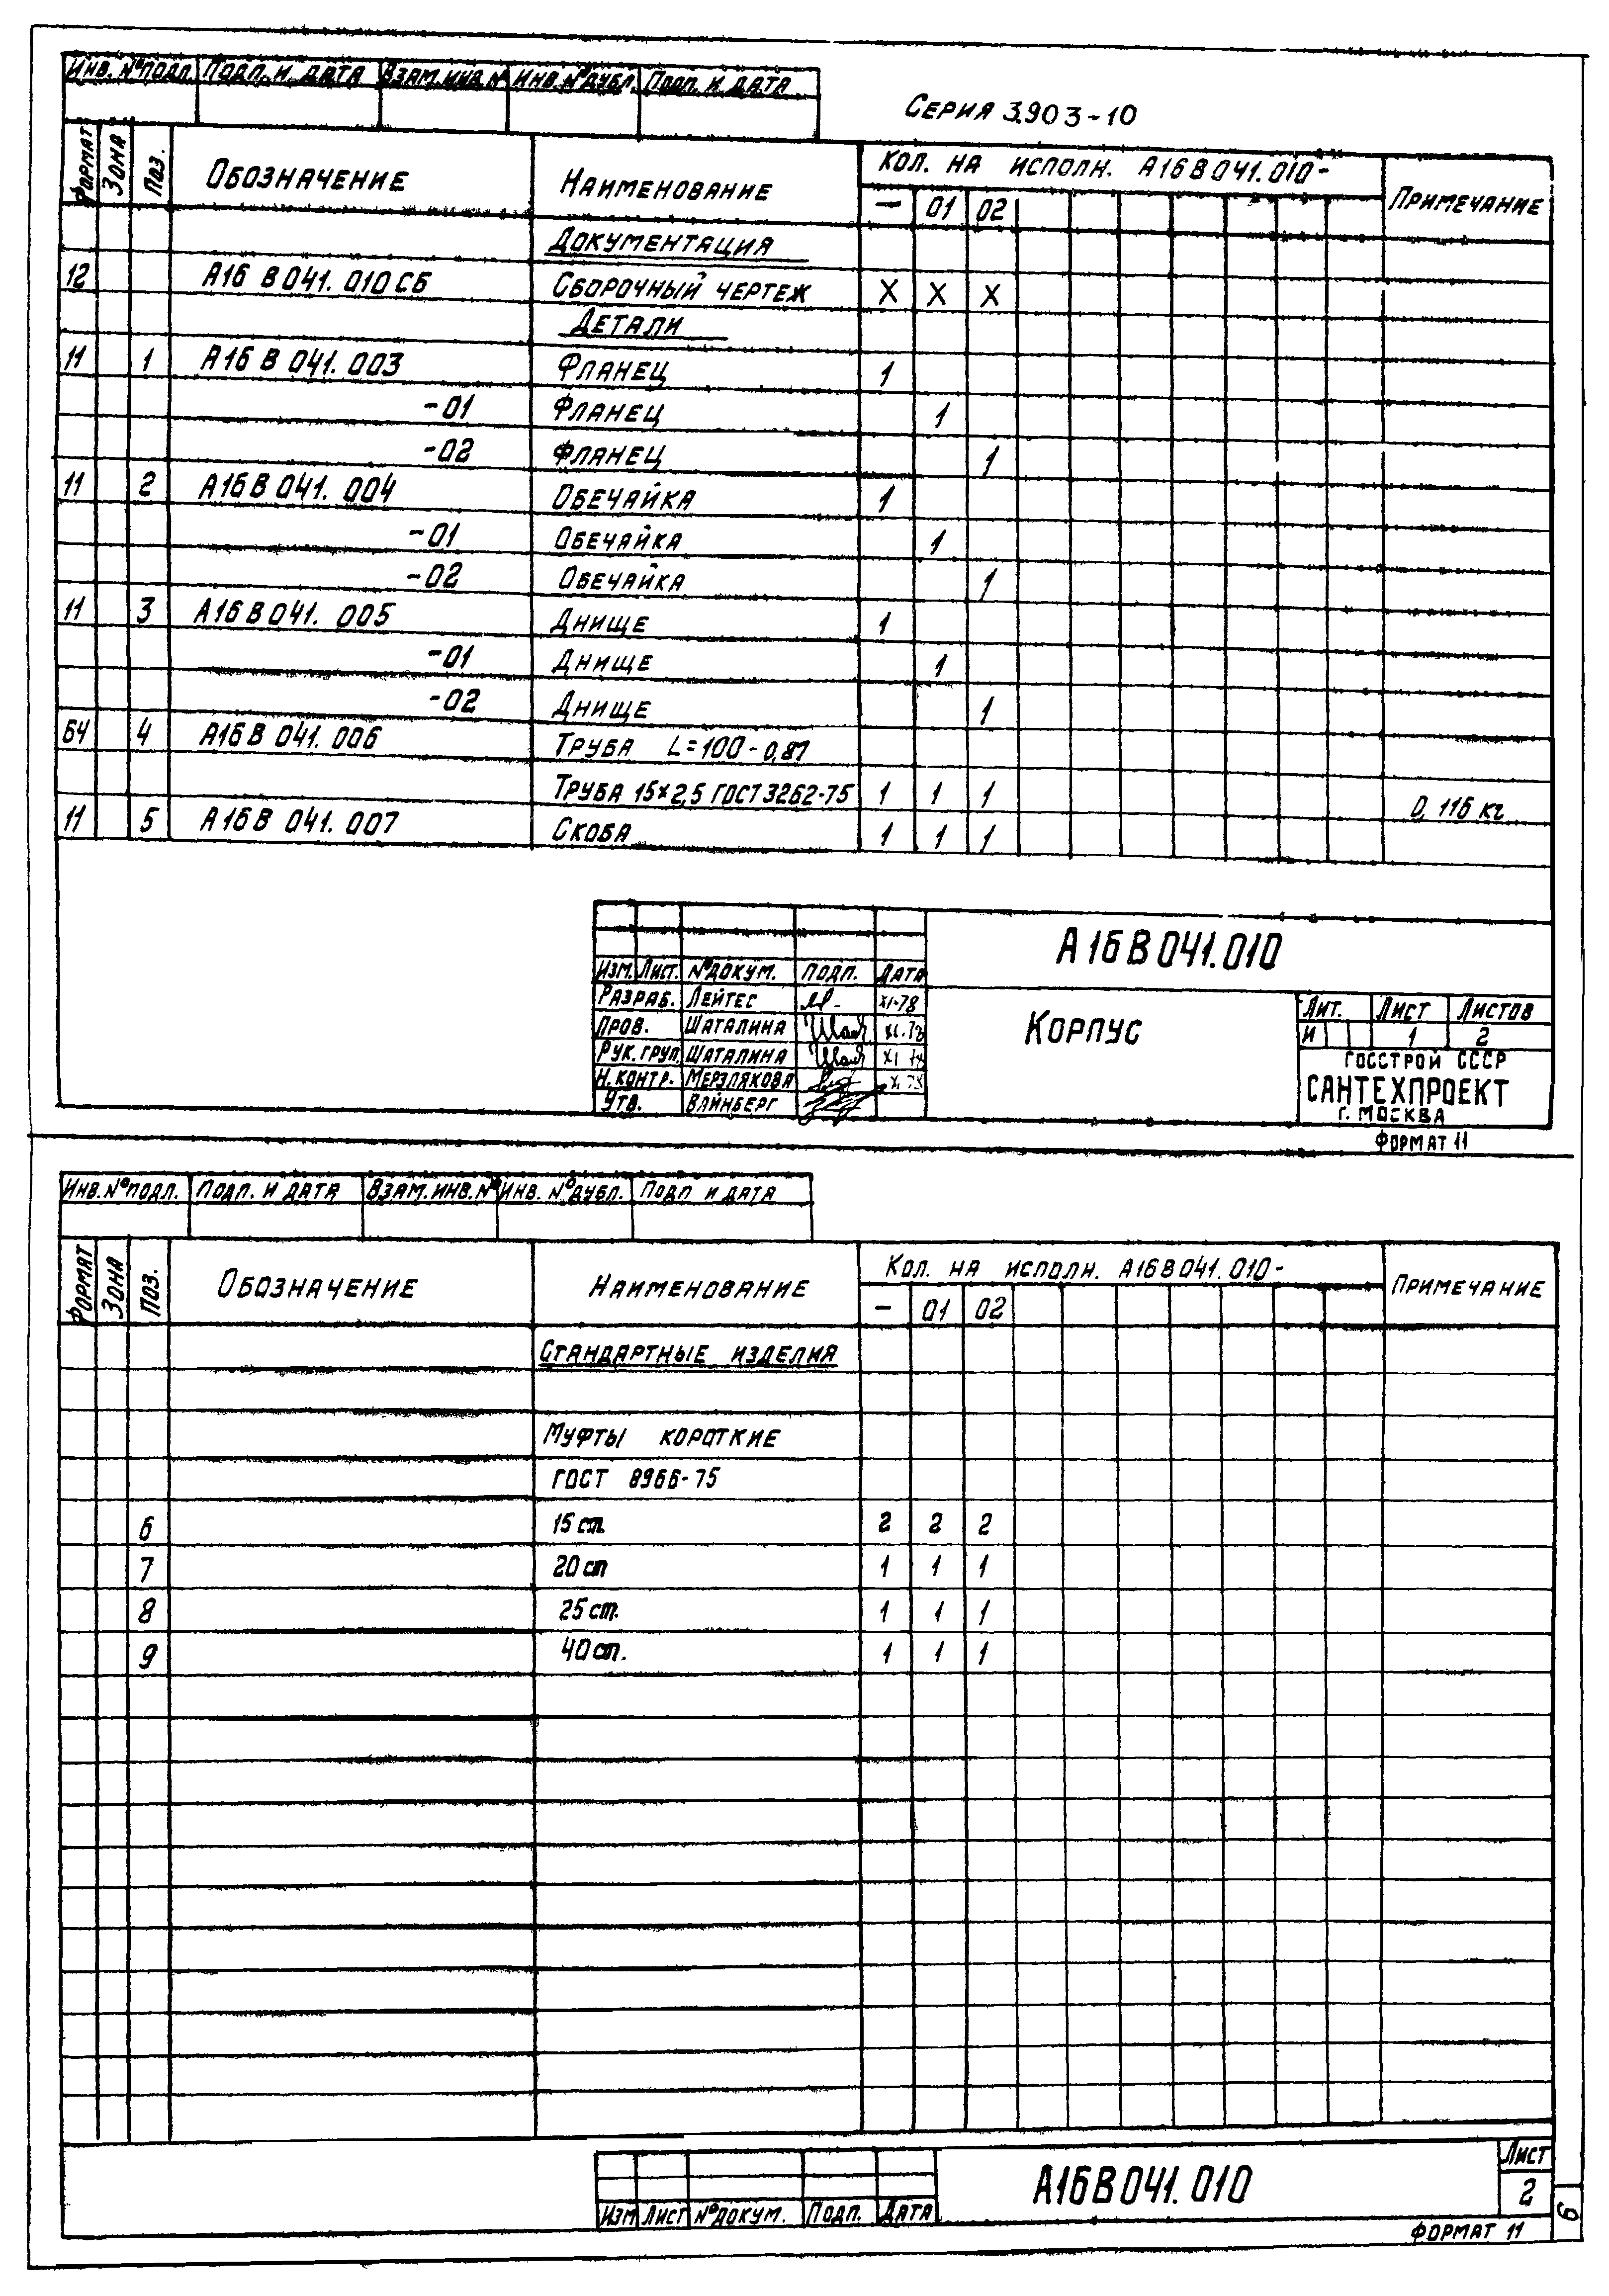 Инв. № подл. Подп. и дата Взам. инв. № Инв. № дубл. Подп. и дата
Серия 3.903-10
Формат Зона Поз. Обозначение Наименование Кол. на исполн. А16В041.010- Примечание
— 01 02
Документация
12 А16В041.010СБ Сборочный чертеж Х Х Х
Детали
11 1 А16В041.003 Фланец 1
-01 Фланец 1
-02 Фланец 1
11 2 А16В041.004 Обечайка 1
-01 Обечайка 1
-02 Обечайка 1
11 3 А16В041.005 Днище 1
-01 Днище 1
-02 Днище 1
БЧ 4 А16В041.006 Труба L=100-0,87
Труба 15×2,5 ГОСТ 3262-75 1 1 1 0,116 кг
11 5 А16В041.007 Скоба 1 1 1
А16В041.010
Изм. Лист. № докум. Подп. Дата
Разраб. Лейтес XI-78
Пров. Шаталина XI.78
Рук. груп. Шаталина XI 78
Н. контр. Мерзлякова XI 78
Утв. Вайнберг
Корпус
Лит. Лист Листов
И 1 2
Госстрой СССР
САНТЕХПРОЕКТ
г. Москва
Формат 11
Инв. № подл. Подп. и дата Взам. инв. № Инв. № дубл. Подп и дата
Формат Зона Поз. Обозначение Наименование Кол. на исполн. А16В041.010- Примечание
— 01 02
Стандартные изделия
Муфты короткие
ГОСТ 8966-75
6 15 ст. 2 2 2
7 20 ст 1 1 1
8 25 ст. 1 1 1
9 40 ст. 1 1 1
Изм Лист № докум. Подп. Дата
А16В041.010
Лист
2
Формат 11
6